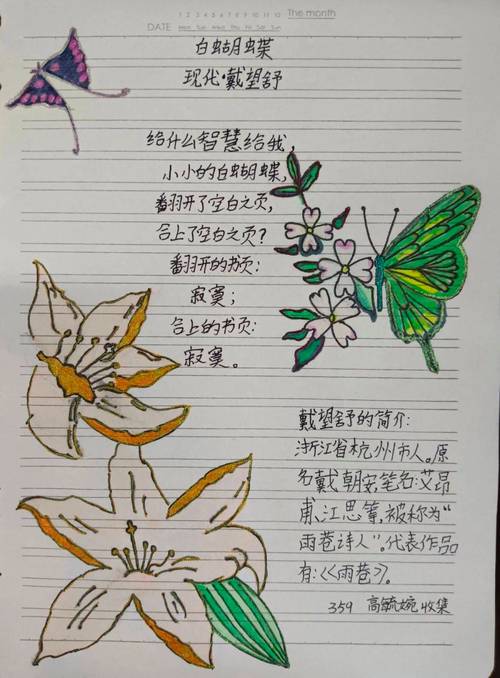 1 2 3 4 5 6 7 8 9 10 11 12 The month
DATE Mon Tue Wed Thu Fri Sat Sun
白蝴蝶
现代·戴望舒
给什么智慧给我,
小小的白蝴蝶,
翻开了空白之页,
合上了空白之页?
翻开的书页:
寂寞;
合上的书页:
寂寞。
戴望舒的简介:
浙江省杭州市人。原
名戴朝安,笔名:艾昂
甫、江思等,被称为“
雨巷诗人”。代表作品
有:《雨巷》。
359 高毓婉收集